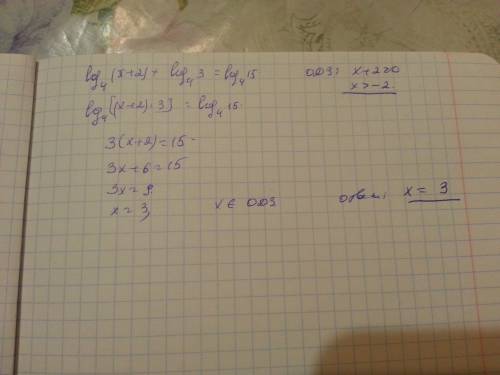 log₄(x+2) + log₄3 = log₄15
ОДЗ: x+2>0
x>-2
log₄[(x+2)·3] = log₄15
3(x+2)=15
3x+6=15
3x=9
x=3,
x ∈ ОДЗ
ответ: x = 3